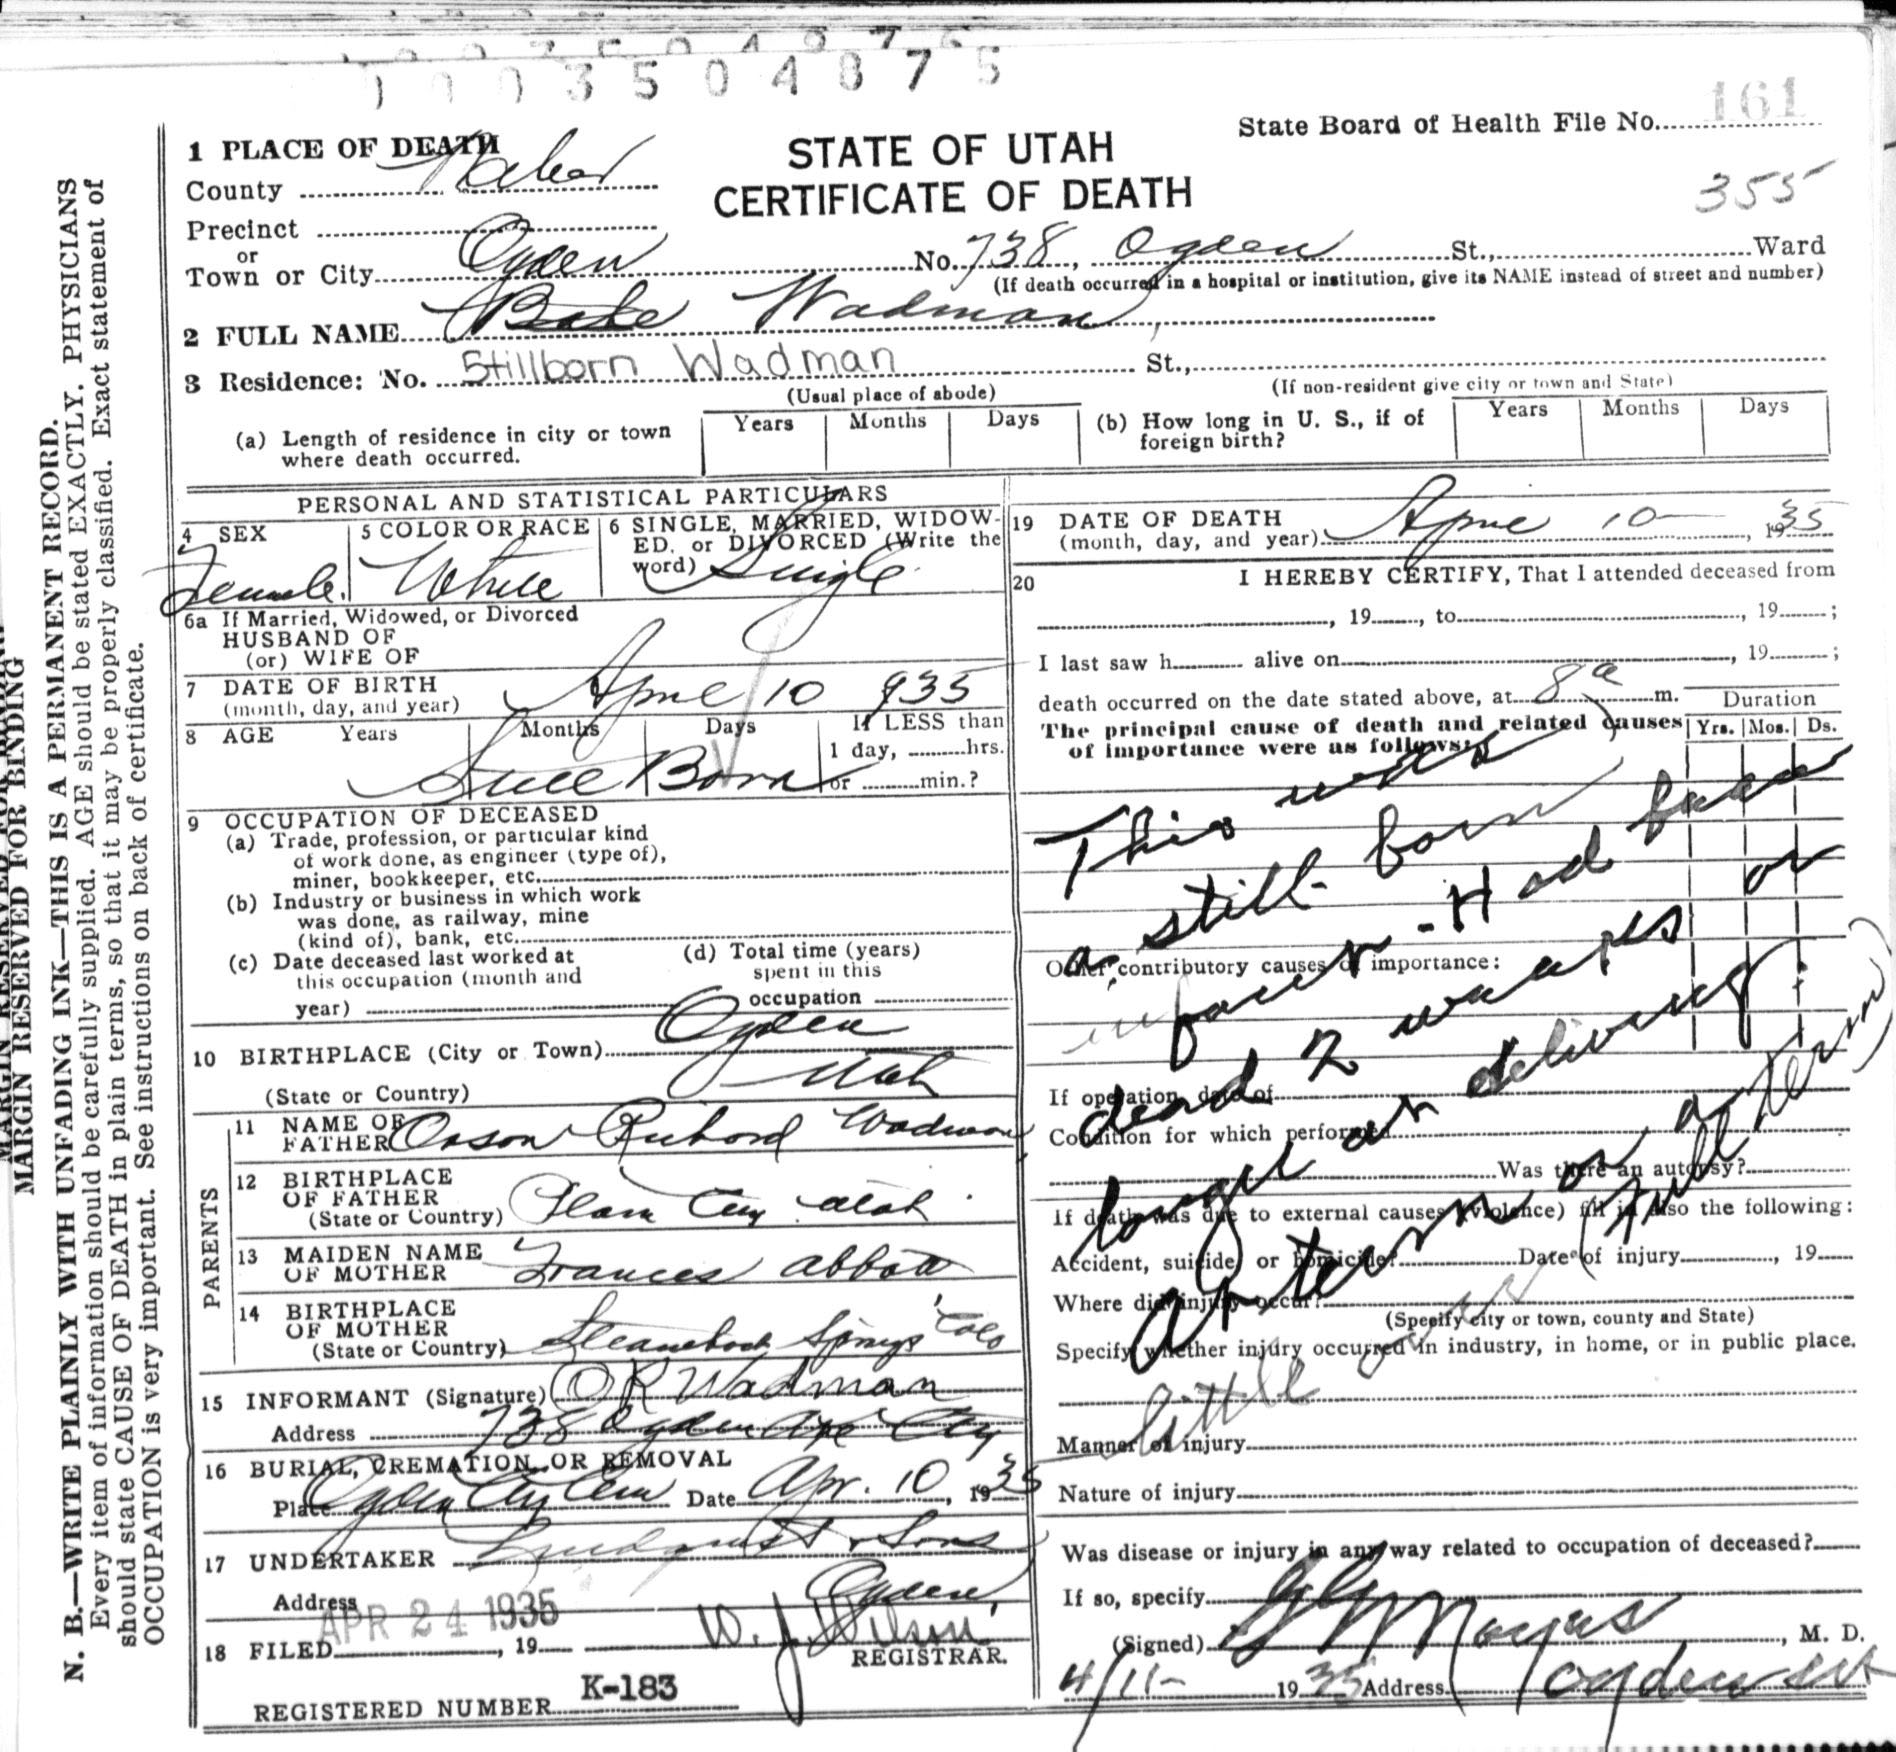 1003504875
State Board of Health File No. 161
355
STATE OF UTAH
CERTIFICATE OF DEATH
1 PLACE OF DEATH
County Weber
Precinct
or
Town or City Ogden No. 738, Ogden St., Ward
(If death occurred in a hospital or institution, give its NAME instead of street and number)
2 FULL NAME Wadman
3 Residence: No. Stillborn Wadman St.,
(Usual place of abode) (If non-resident give city or town and State)
(a) Length of residence in city or town where death occurred. Years Months Days
(b) How long in U. S., if of foreign birth? Years Months Days
PERSONAL AND STATISTICAL PARTICULARS
4 SEX
Female
5 COLOR OR RACE
White
6 SINGLE, MARRIED, WIDOWED, or DIVORCED (Write the word) Single
6a If Married, Widowed, or Divorced
HUSBAND OF
(or) WIFE OF
7 DATE OF BIRTH
(month, day, and year) April 10 935
8 AGE Years Months Days If LESS than
1 day, hrs.
or min.?
Still Born
9 OCCUPATION OF DECEASED
(a) Trade, profession, or particular kind
of work done, as engineer (type of),
miner, bookkeeper, etc.
(b) Industry or business in which work
was done, as railway, mine
(kind of), bank, etc.
(c) Date deceased last worked at
this occupation (month and
year)
(d) Total time (years)
spent in this
occupation
10 BIRTHPLACE (City or Town) Ogden
(State or Country) Utah
PARENTS
11 NAME OF
FATHER Orson Richard Wadman
12 BIRTHPLACE
OF FATHER
(State or Country) Plain City Utah
13 MAIDEN NAME
OF MOTHER Frances Abbott
14 BIRTHPLACE
OF MOTHER
(State or Country) Steamboat Springs Colo
15 INFORMANT (Signature) O R Wadman
Address 738 Ogden Ave City
16 BURIAL, CREMATION, OR REMOVAL
Place Ogden City Cem Date Apr. 10, 1935
17 UNDERTAKER Lindquist & Sons
Address Ogden,
APR 24 1935
18 FILED, 19 W. J. Wilson
REGISTRAR.
REGISTERED NUMBER K-183
19 DATE OF DEATH
(month, day, and year) April 10, 1935
20 I HEREBY CERTIFY, That I attended deceased from
, 19, to, 19;
I last saw h alive on, 19;
death occurred on the date stated above, at 8a m.
The principal cause of death and related causes
of importance were as follows:
Duration
Yrs. Mos. Ds.
This was
a still born
- Had been
dead 2 weeks or
longer on delivery.
At term or a
little over
(Full term)
Other contributory causes of importance:
If operation, date of
Condition for which performed
Was there an autopsy?
If death was due to external causes (violence) fill in also the following:
Accident, suicide, or homicide? Date of injury, 19
Where did injury occur?
(Specify city or town, county and State)
Specify whether injury occurred in industry, in home, or in public place.
Manner of injury
Nature of injury
Was disease or injury in any way related to occupation of deceased?
If so, specify
(Signed), M. D.
4/11- 1935 Address Ogden Ut
MARGIN RESERVED FOR BINDING
N. B.—WRITE PLAINLY WITH UNFADING INK—THIS IS A PERMANENT RECORD.
Every item of information should be carefully supplied. AGE should be stated EXACTLY. PHYSICIANS
should state CAUSE OF DEATH in plain terms, so that it may be properly classified. Exact statement of
OCCUPATION is very important. See instructions on back of certificate.